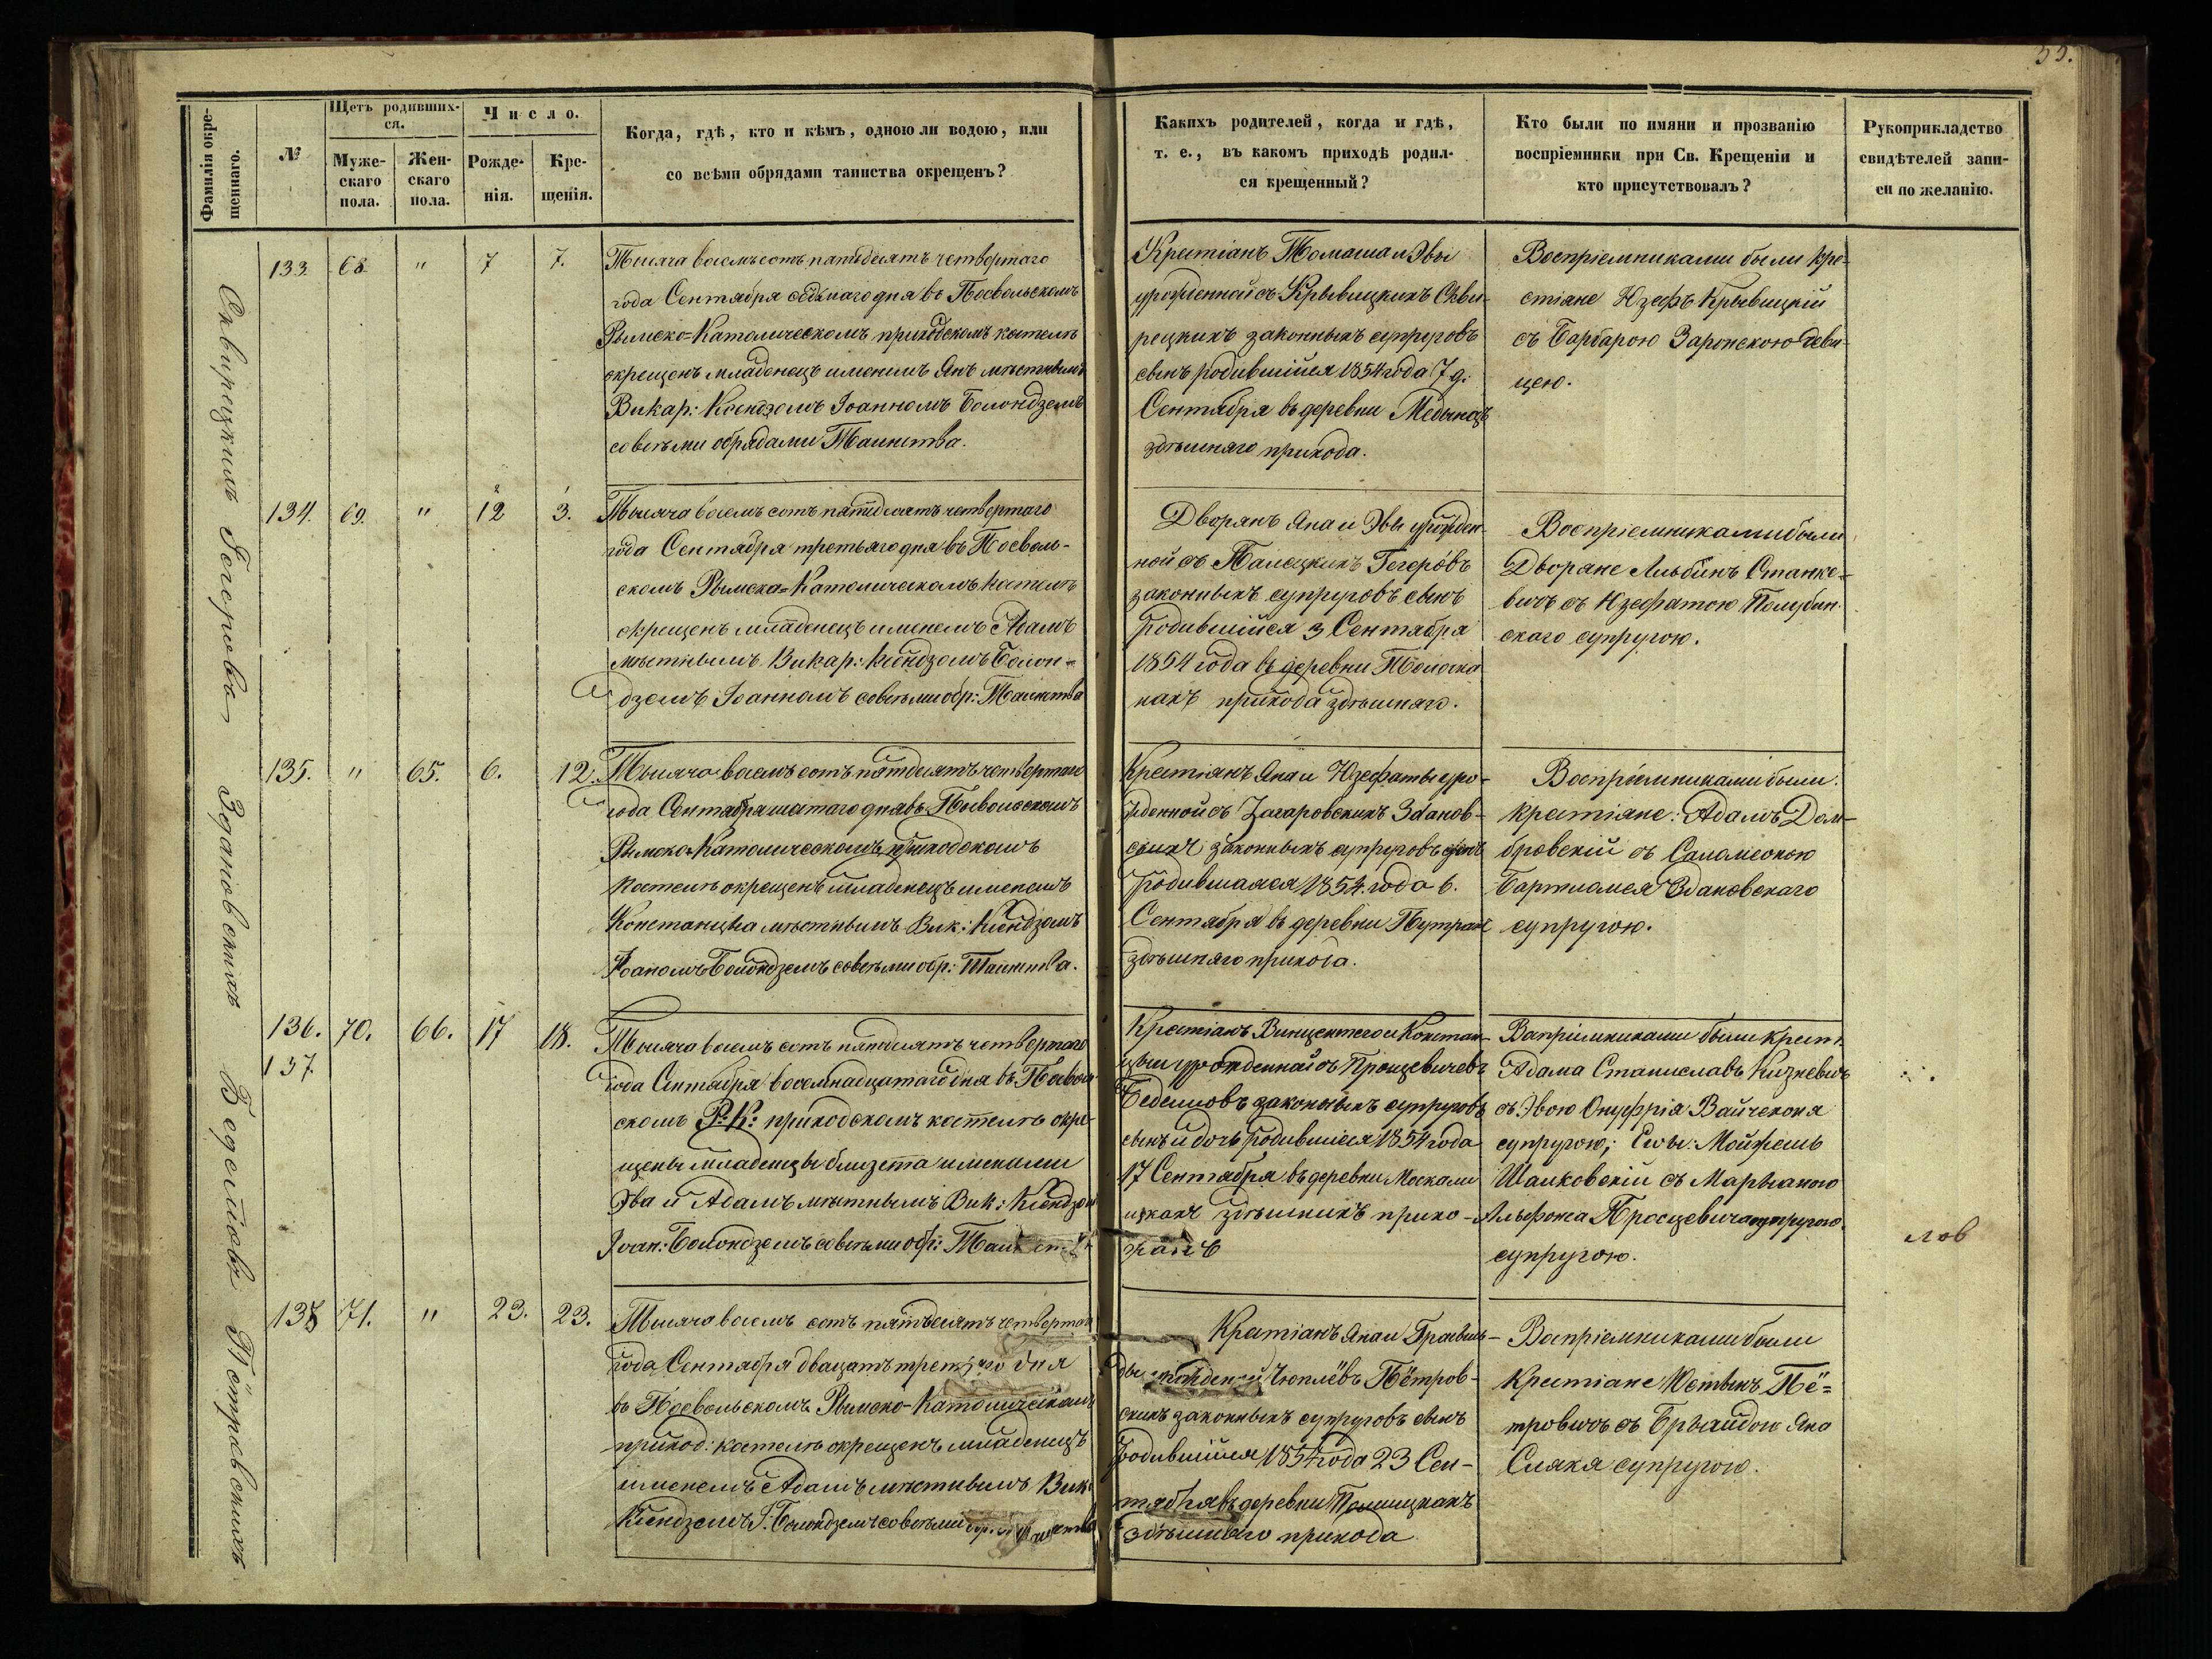 53.
Фамилія окре-
щеннаго.
№
Щетъ родивших-
ся.
Муже-
скаго
пола.
Жен-
скаго
пола.
Число.
Рожде-
нія.
Кре-
щенія.
Когда, гдѣ, кто и кѣмъ, одною ли водою, или
со всѣми обрядами таинства окрещенъ?
Какихъ родителей, когда и гдѣ,
т. е., въ какомъ приходѣ родил-
ся крещенный?
Кто были по имяни и прозванію
воспріемники при Св. Крещеніи и
кто присутствовалъ?
Рукоприкладство
свидѣтелей запи-
си по желанію.
Сквирецкимъ
133 68 " 7 7.
Тысяча восемьсотъ пятьдесятъ четвертаго
года Сентября седмаго дня въ Посвольскомъ
Рымско-Католическомъ приходскомъ костелѣ
окрещенъ младенецъ именимъ Янъ мѣстнымъ
Викар: Ксендзомъ Іоанномъ Болондземъ
совсѣми обрядами Таинства.
Крестіанъ Томаша и Эвы
урожденной съ Крывицкихъ Скви-
рецкихъ законныхъ супруговъ
сынъ родившійся 1854 года 7 д.
Сентября въ деревни Медынцъ
здѣшняго прихода.
Воспріемниками были кре-
стіане Юзефъ Крывицкій
съ Барбарою Заронскою деви-
цею.
Гегеровъ
134. 69. " 12 3.
Тысяча восемъ сотъ пятдесятъ четвертаго
года Сентября третьяго дня въ Посволь-
скомъ Рымско-Католическомъ костелѣ
окрещенъ младенецъ именемъ Адамъ
мѣстнымъ Викар: Ксендзомъ Болон-
дземъ Іоанномъ совсѣми обр: Таинства
Дворянъ Яна и Эвы урожден-
ной съ Палецкихъ Гегеровъ
законныхъ супруговъ сынъ
родившійся 3 Сентября
1854 года въ деревни
нахъ прихода здѣшняго.
Воспріемниками были
Дворяне Альбинъ Станке-
вичъ съ Юзефатою Полубин-
скаго супругою.
Здановскихъ
135. " 65. 6. 12.
Тысяча восемъ сотъ пятдесятъ четвертаго
года Сентября шестаго дня въ Посвольскомъ
Римско-Католическомъ приходскомъ
костелѣ окрещенъ младенецъ именемъ
Констанцыа мѣстнымъ Вик: Ксендзомъ
Іоаномъ Болондземъ совсѣми обр: Таинства.
Крестіянъ Яна и Юзефаты уро-
жденной съ Загаровскихъ Зданов-
скихъ законныхъ супруговъ дочь
родившаяся 1854 года 6.
Сентября въ деревни
здѣшняго прихода.
Воспріемниками были
крестіяне: Адамъ Дом-
бровскій съ Саломеоною
Бартломея Здановскаго
супругою.
Беделювъ
136. 70. 66. 17 18.
137
Тысяча восемъ сотъ пятдесятъ четвертаго
года Сентября восемнадцатаго дня въ Посволь-
скомъ Р: К: приходскомъ костелѣ окре-
щены младенцы близнята именами
Эва и Адамъ мѣстнымъ Вик: Ксендзом
Іоан: Болондземъ совсѣми обр:
Крестіанъ Винцентего и Констан-
цыи урожденной съ Процевичевъ
Беделювъ законныхъ супруговъ
сынъ и дочь родившіеся 1854 года
17 Сентября въ деревни Москали
шкахъ здѣшнихъ прихо-
жанъ
Вапріемниками были крест:
Адама Станиславъ Кизневичъ
съ Эвою Онуфрія Вайчекона
супругою;
Шалковскій съ Марыаною
Альфонса Процевича супругою
супругою.
лов
Пётровскихъ
138 71. " 23. 23.
Тысяча восемъ сотъ пятьдесятъ четвертаго
года Сентября двацать третьяго дня
въ Посвольскомъ Рымско-Католическомъ
приход: костелѣ окрещенъ младенецъ
именемъ Адамъ мѣстнымъ Вик:
Ксендземъ І: Болондземъ совсѣми
Крестіанъ Яна и
Пётров-
скихъ законныхъ супруговъ сынъ
родившійся 1854 года 23 Сен-
тября въ деревни
здѣшняго прихода
Вапріемниками были
Крестіане Юстынъ Пё-
тровичъ съ Брыгидою Яна
Слякя супругою.